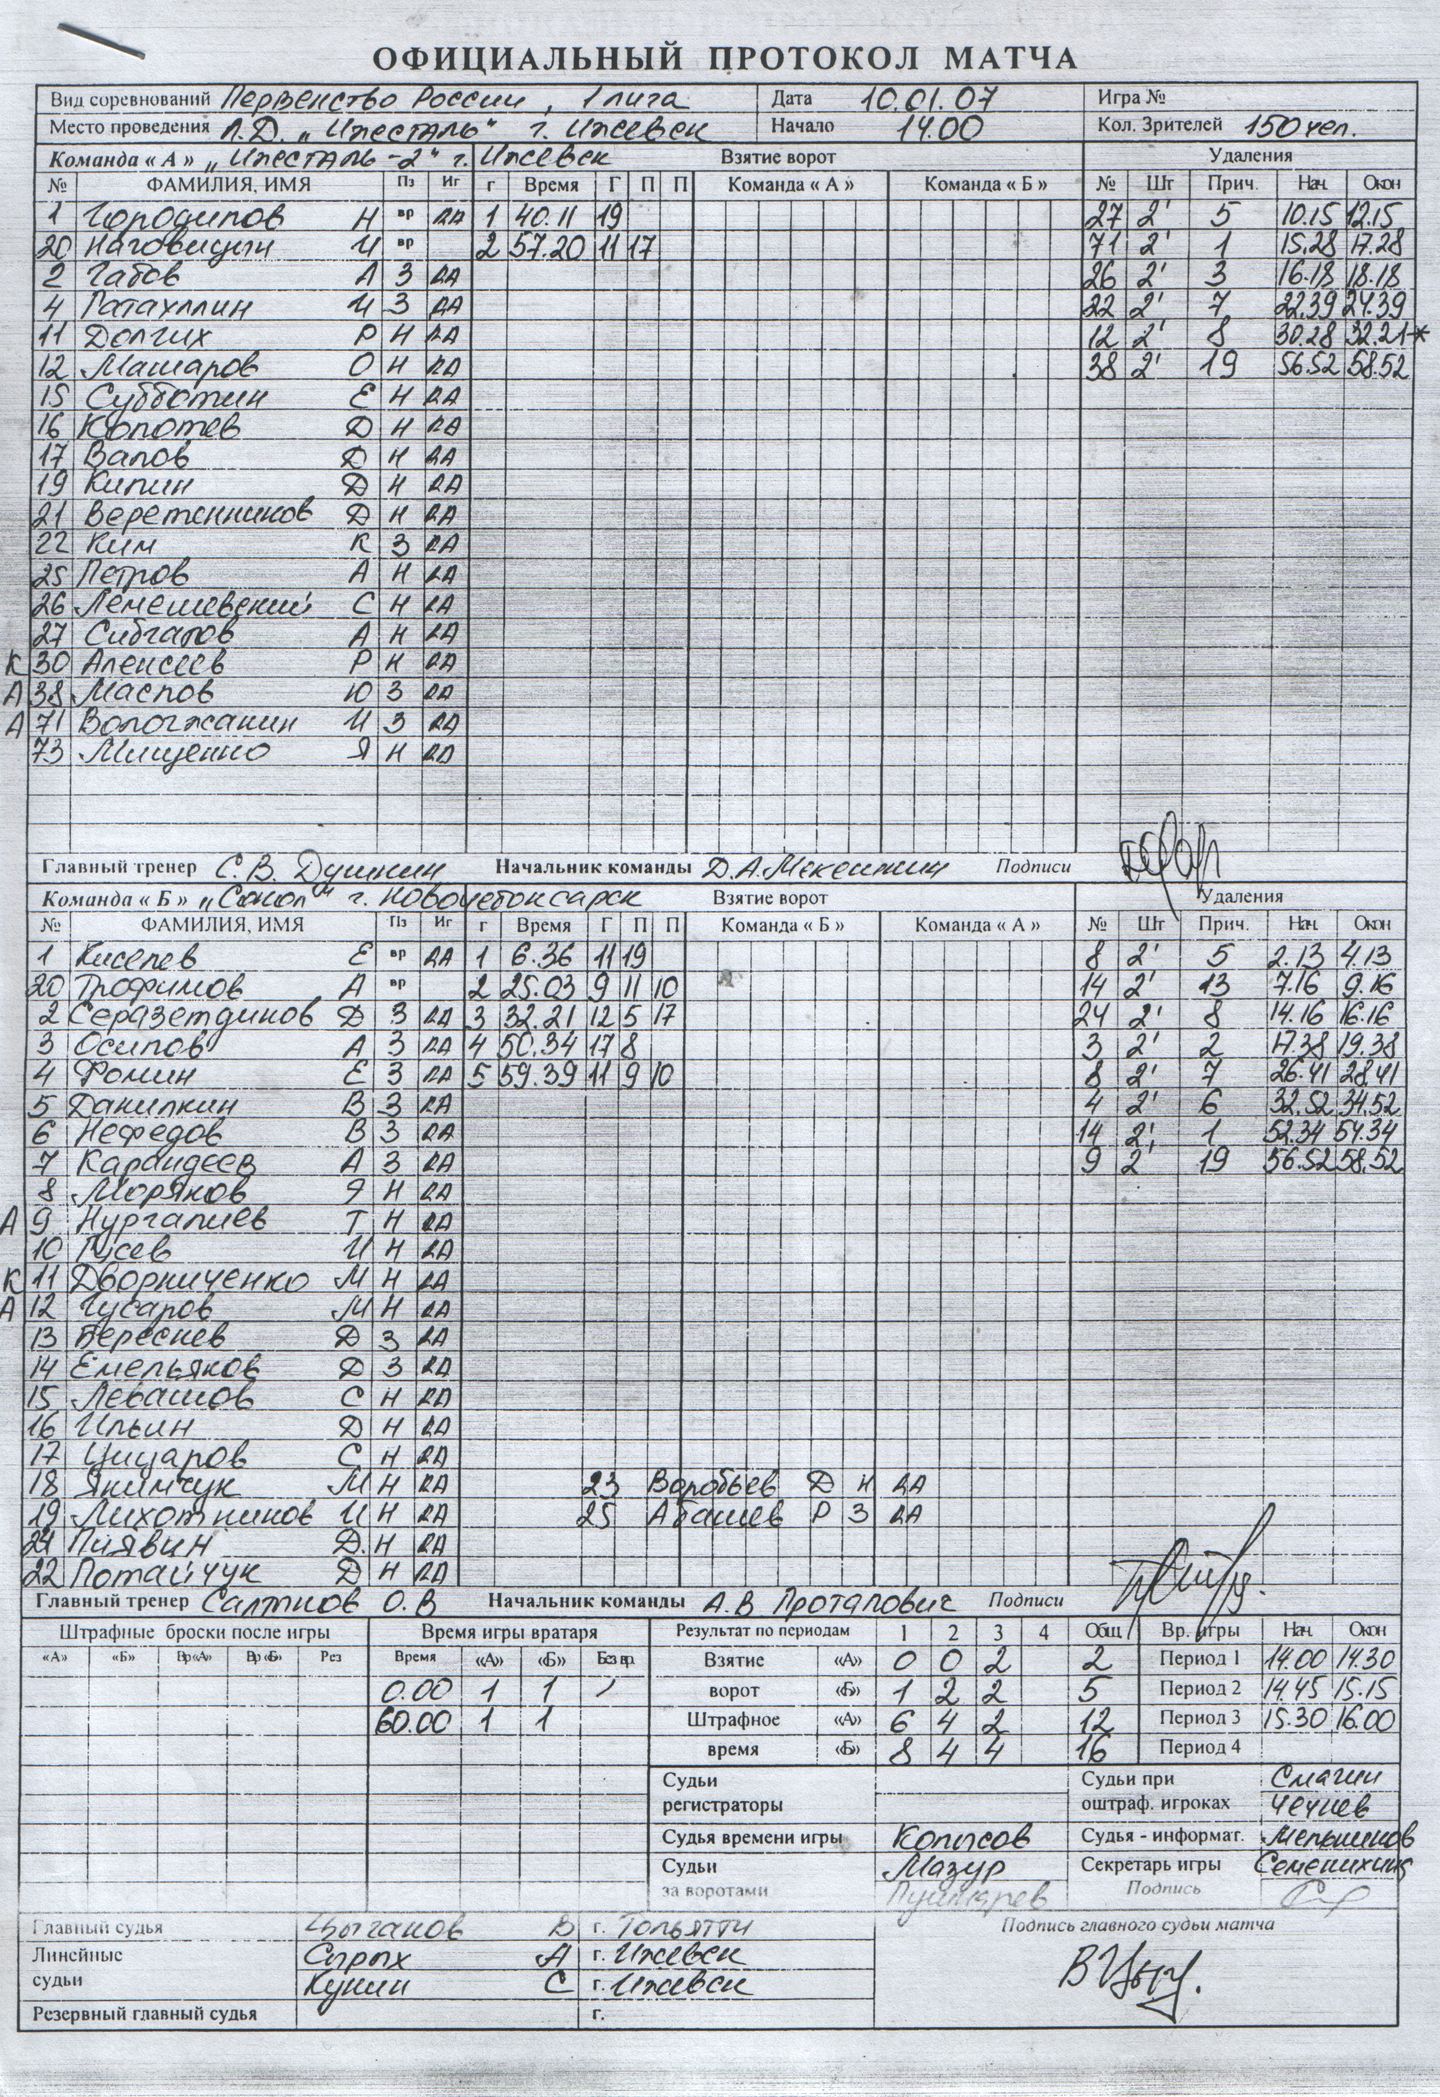 ОФИЦИАЛЬНЫЙ ПРОТОКОЛ МАТЧА
Вид соревнований Первенство России, 1 лига Дата 10.01.07 Игра №
Место проведения Л.Д. „Ижсталь" г. Ижевск Начало 14.00 Кол. Зрителей 150 чел.
Команда « А » „Ижсталь-2" г. Ижевск Взятие ворот Удаления
№ ФАМИЛИЯ, ИМЯ Пз Иг г Время Г П П Команда « А » Команда « Б » № Шт Прич. Нач. Окон
1 Городилов Н вр ДА 1 40.11 19 27 2' 5 10.15 12.15
20 Наговицын И вр 2 57.20 11 17 71 2' 1 15.28 17.28
2 Габов А З ДА 26 2' 3 16.18 18.18
4 Гатахллин И З ДА 22 2' 7 22.39 24.39
11 Долгих Р Н ДА 12 2' 8 30.28 32.21 *
12 Машаров О Н ДА 38 2' 19 56.52 58.52
15 Субботин Е Н ДА
16 Копотев Д Н ДА
17 Валов Д Н ДА
19 Кипин Д Н ДА
21 Веретенников Д Н ДА
22 Ким К З ДА
25 Петров А Н ДА
26 Лемешевский С Н ДА
27 Сибгатов А Н ДА
К 30 Алексеев Р Н ДА
А 38 Маслов Ю З ДА
А 71 Вологжанин И З ДА
73 Мищенко Я Н ДА
Главный тренер С.В. Душкин Начальник команды Д.А. Подписи
Команда « Б » „Сокол" г. Новочебоксарск Взятие ворот Удаления
№ ФАМИЛИЯ, ИМЯ Пз Иг г Время Г П П Команда « Б » Команда « А » № Шт Прич. Нач. Окон
1 Киселев Е вр ДА 1 6.36 11 19 8 2' 5 2.13 4.13
20 Трофимов А вр 2 25.03 9 11 10 14 2' 13 7.16 9.16
2 Серазетдинов Д З ДА 3 32.21 12 5 17 24 2' 8 14.16 16.16
3 Осипов А З ДА 4 50.34 17 8 3 2' 2 17.38 19.38
4 Фомин Е З ДА 5 59.39 11 9 10 8 2' 7 26.41 28.41
5 Данилкин В З ДА 4 2' 6 32.52 34.52
6 Нефедов В З ДА 14 2' 1 52.34 54.34
7 Карандеев А З ДА 9 2' 19 56.52 58.52
8 Моряков Я Н ДА
А 9 Нургалиев Т Н ДА
10 Гусев И Н ДА
К 11 Дворниченко М Н ДА
А 12 Гусаров М Н ДА
13 Береснев Д З ДА
14 Емельяков Д З ДА
15 Левашов С Н ДА
16 Ильин Д Н ДА
17 Цицаров С Н ДА
18 Якимчук М Н ДА 23 Воробьев Д Н ДА
19 Лихотников И Н ДА 25 Абашев Р З ДА
24 Пиявин Д. Н ДА
22 Потайчук Д Н ДА
Главный тренер Салтыков О.В Начальник команды А.В Протапович Подписи
Штрафные броски после игры Время игры вратаря Результат по периодам 1 2 3 4 Общ. Вр. игры Нач. Окон
«А» «Б» Вр«А» Вр«Б» Рез Время «А» «Б» Без вр. Взятие «А» 0 0 2 2 Период 1 14.00 14.30
0.00 1 1 ворот «Б» 1 2 2 5 Период 2 14.45 15.15
60.00 1 1 Штрафное «А» 6 4 2 12 Период 3 15.30 16.00
время «Б» 8 4 4 16 Период 4
Судьи Судьи при Смагин
регистраторы оштраф. игроках Чечнев
Судья времени игры Колысов Судья - информат. Меньшиков
Судьи Мазур Секретарь игры Семенихина
за воротами Пушкарев Подпись
Главный судья Цыганов В г. Тольятти Подпись главного судьи матча
Линейные Сырых А г. Ижевск
судьи Кунин С г. Ижевск
Резервный главный судья г.